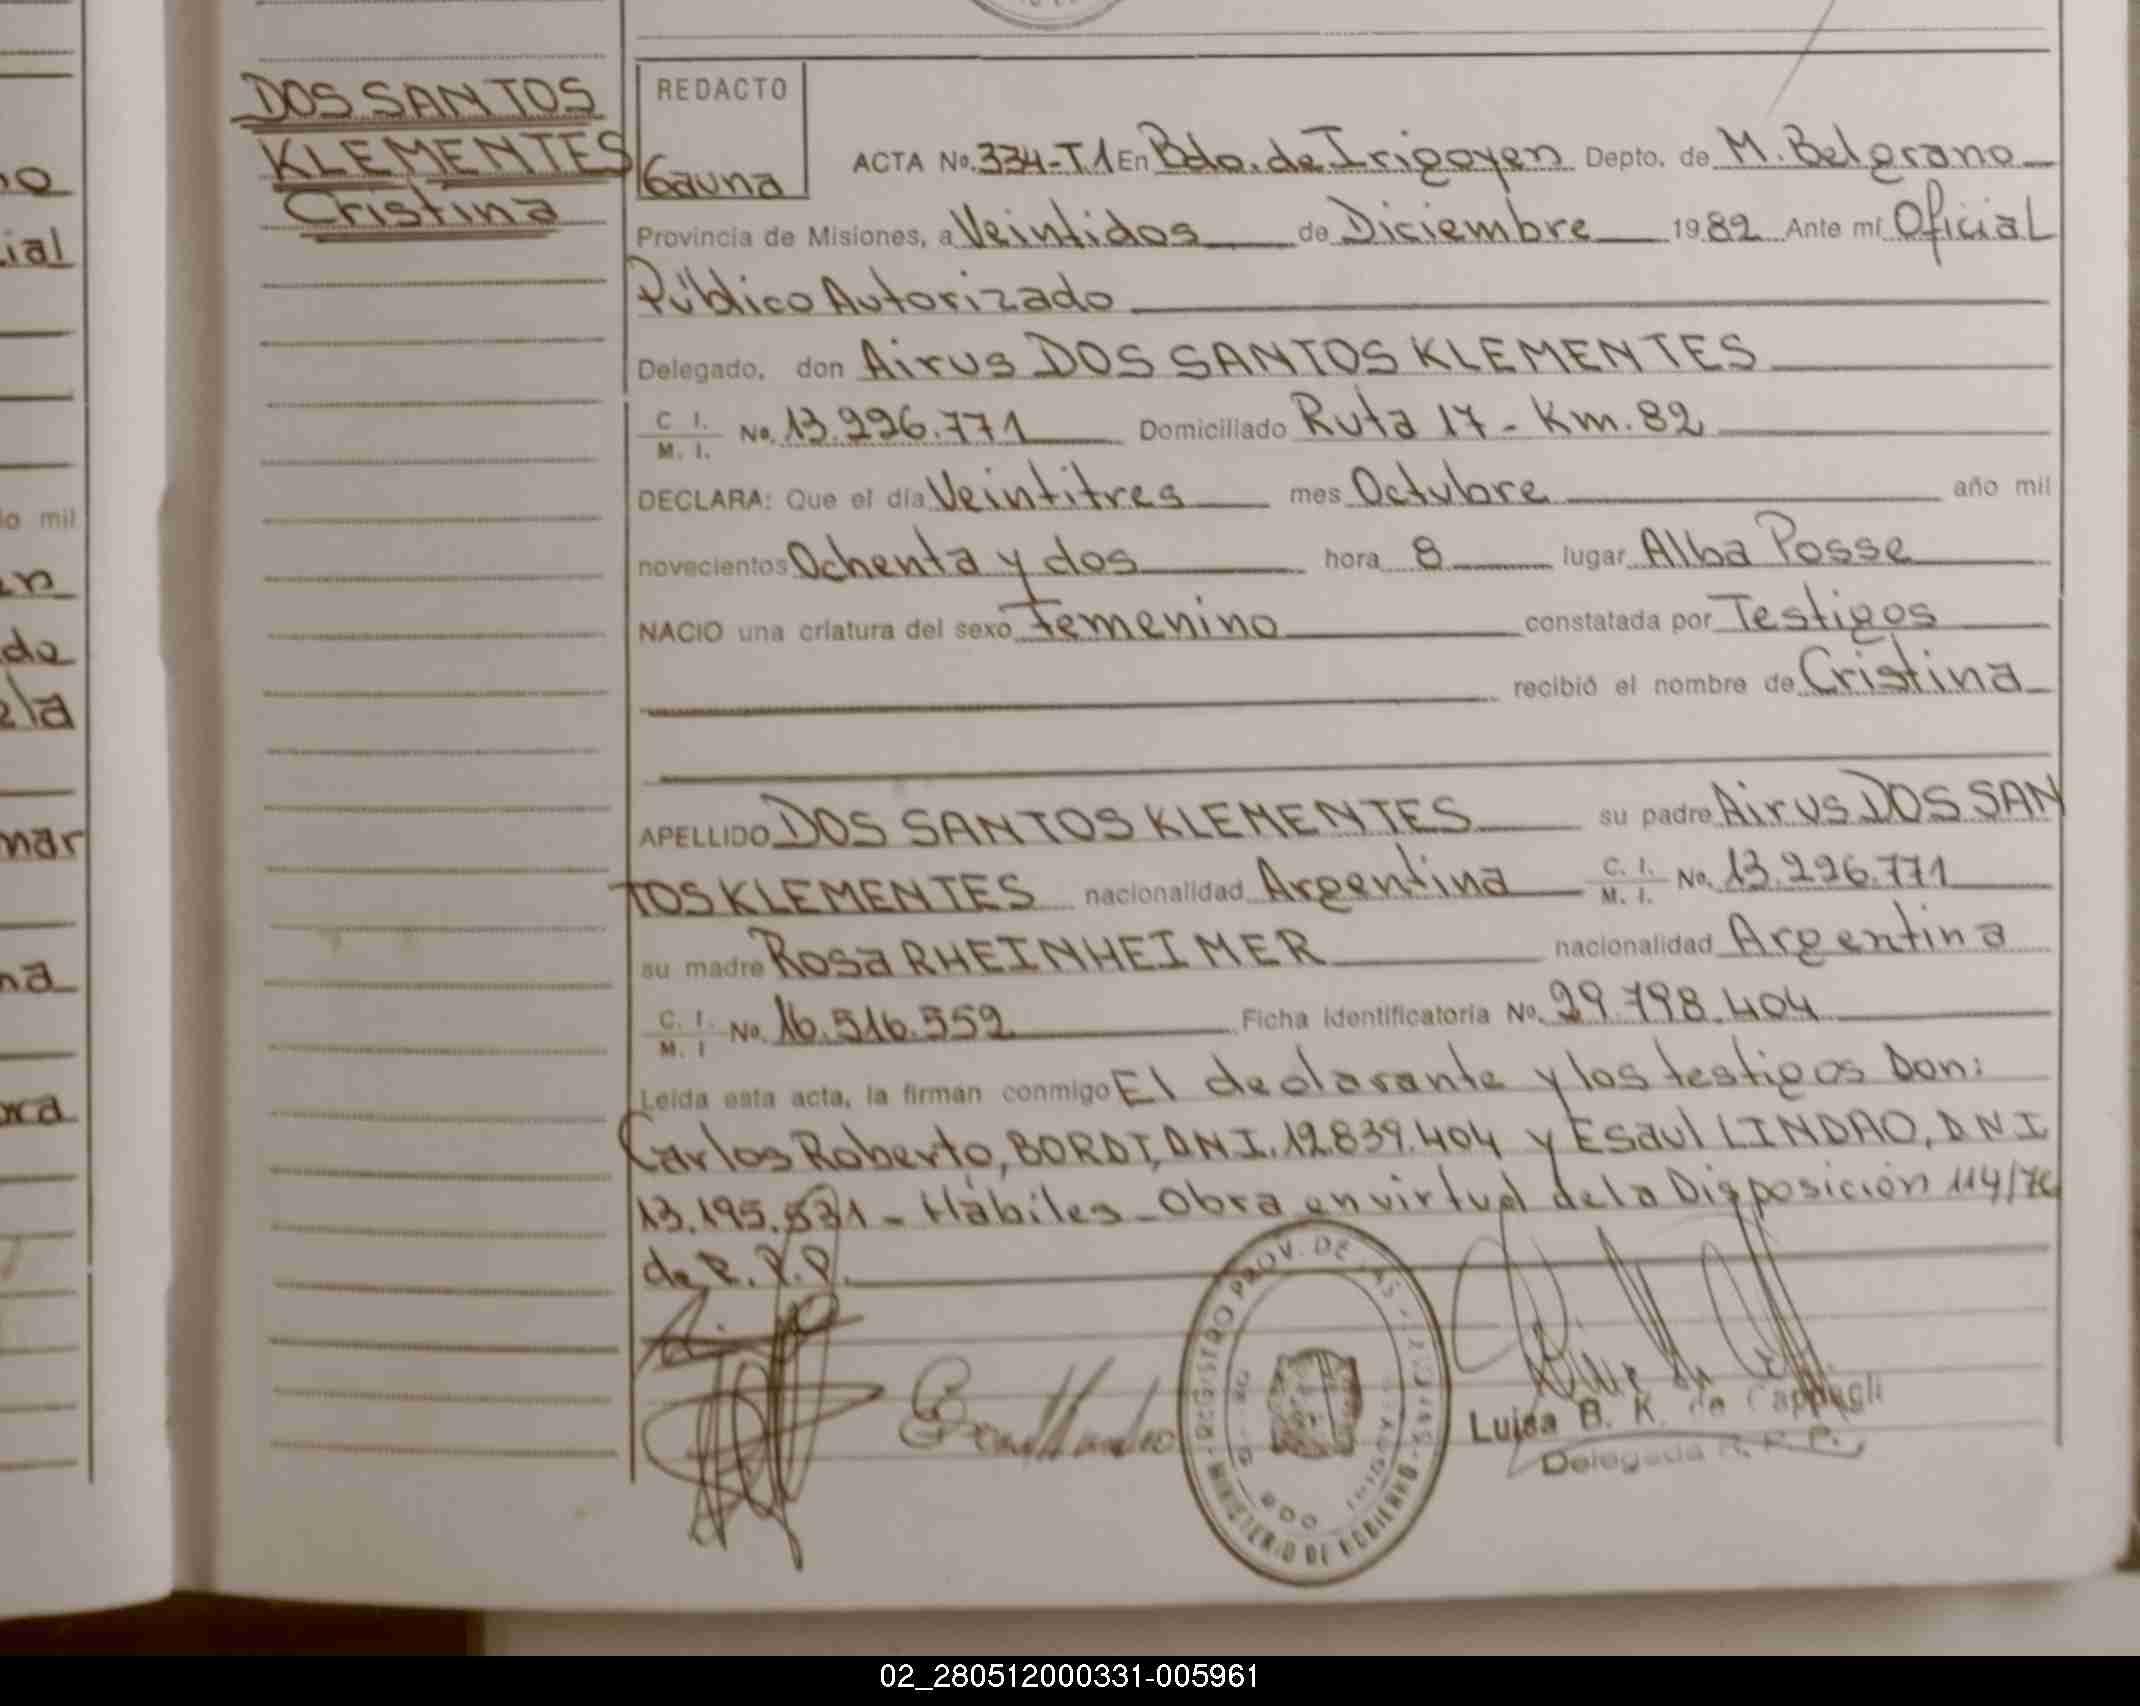 DOS SANTOS
KLEMENTES
Cristina
REDACTO
Gauna
ACTA No. 334-T.1 En Bdo. de Irigoyen Depto. de M. Belgrano
Provincia de Misiones, a Veintidos de Diciembre 1982 Ante mí Oficial
Público Autorizado
Delegado, don Airus DOS SANTOS KLEMENTES
C. I.
M. I. No. 13.226.771 Domiciliado Ruta 17 - Km. 82
DECLARA: Que el día Veintitres mes Octubre año mil
novecientos Ochenta y dos hora 8 lugar Alba Posse
NACIO una criatura del sexo Femenino constatada por Testigos
recibió el nombre de Cristina
APELLIDO DOS SANTOS KLEMENTES su padre Airus DOS SAN
TOS KLEMENTES nacionalidad Argentina C. I. M. I. No. 13.226.771
su madre Rosa RHEINHEIMER nacionalidad Argentina
C. I. M. I No. 16.516.552 Ficha identificatoria No. 29.798.404
Leída esta acta, la firman conmigo El declarante y los testigos Don:
Carlos Roberto, BORDI, DNI. 12.839.404 y Esaul LINDAO, DNI
13.195.531 - Hábiles - Obra en virtud de la Disposición 114/76
de R.P.P.
REGISTRO PROV. DE LAS PERSONAS
MINISTERIO DE GOBIERNO
Luisa B. K. de
Delegada R. P. P.
02_280512000331-005961